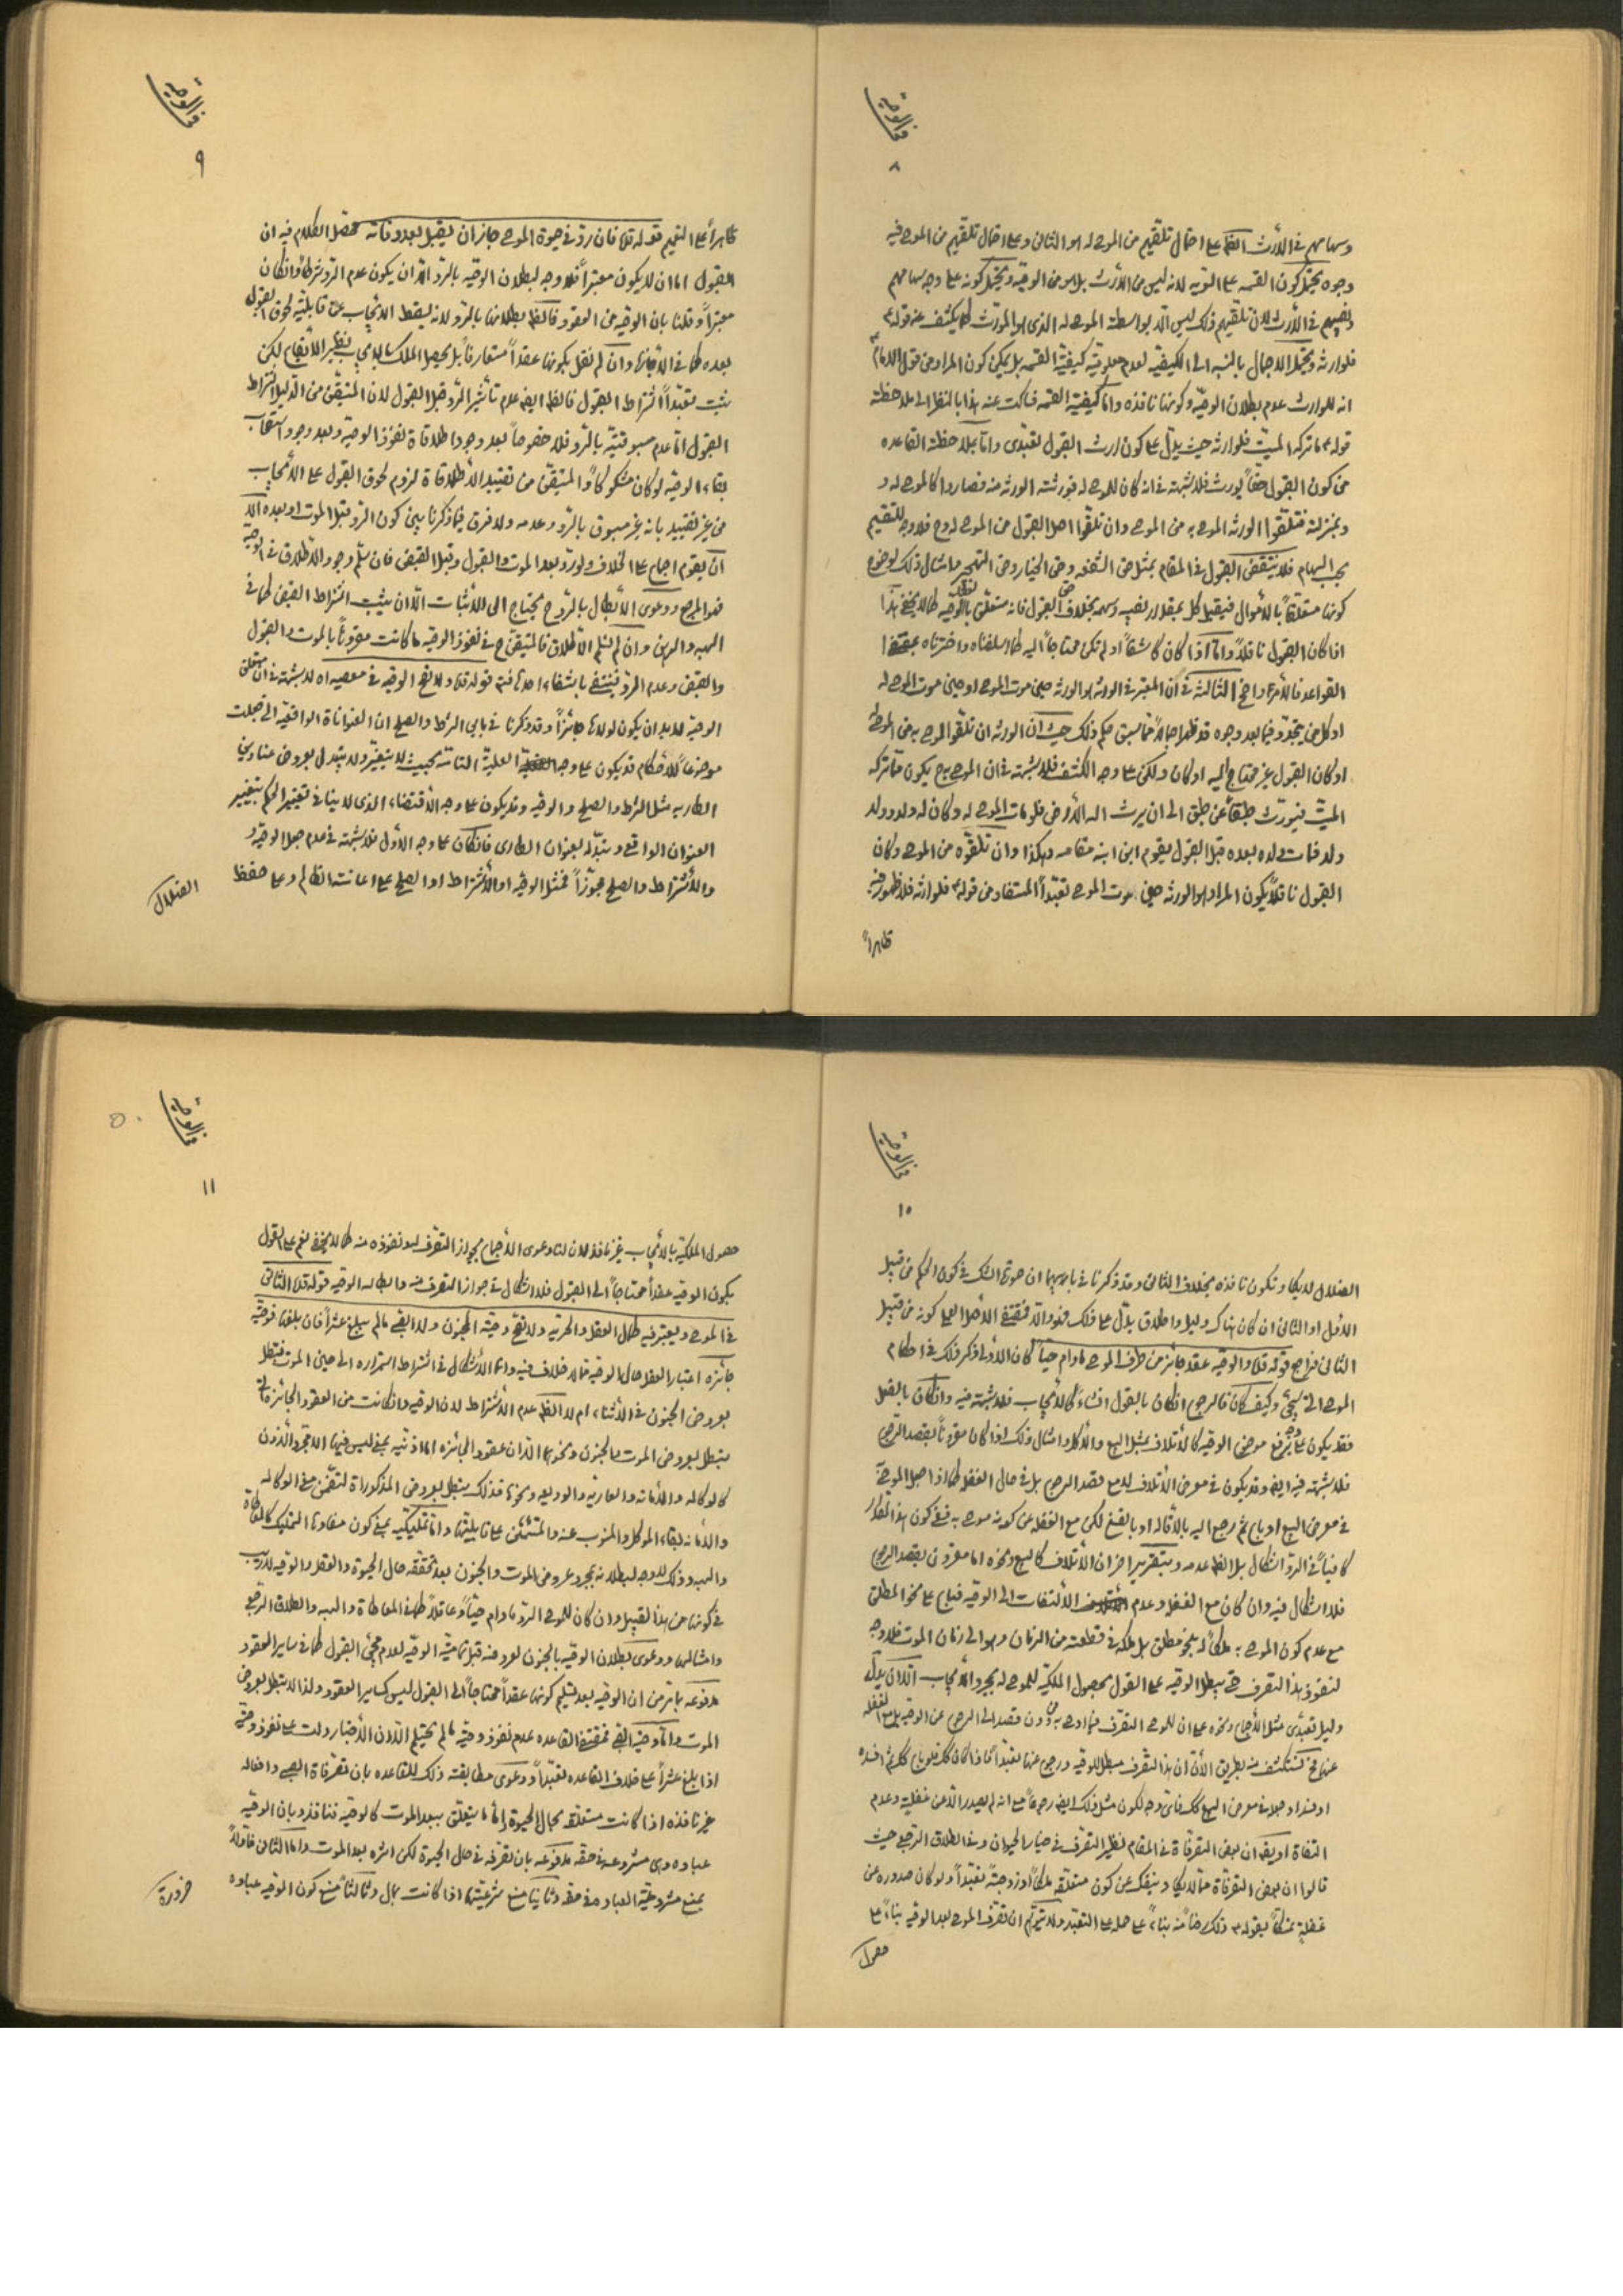 في الوصية
٨
وسهامهم في الأرث الظ على احتمال تلقيهم من الموصى له هو الثاني وعلى احتمال تلقيهم من الموصى فيه
وجوه يحتمل كون القسمة على السوية لانه ليس من الأرث بل هو من الوصية ويحتمل كونه على وجه سهامهم
ونصيبهم في الأرث لان تلقيهم ذلك ليس الا بواسطة الموصى له الذي هو المورث كما يكشف عنه قوله ع
فلوارثه ويحتمل الاجمال بالنسبة الى الكيفية لعدم معلومية كيفية القسمة بل يمكن كون المراد من قول الامام ع
انه للوارث عدم بطلان الوصية وكونها نافذة واما كيفية القسمة فساكت عنه هذا بالنظر الى ملاحظة
قوله ع ما تركه الميت فلوارثه حيث يدل على كون ارث القبول تعبدي واما بملاحظة القاعدة
من كون القبول حقا يورث فلا شبهة في انه كان للموصى له فورثته الورثة منه فصاروا كالموصى له و
وبمنزلته فتلقوا الورثة الموصى به من الموصى وان تلقوا اصل القبول من الموصى له وح فلا وجه للتقسيم
بحسب السهام فلا ينتقض القبول في المقام بمثل حق الشفعة وحق الخيار وحق التحجير وامثال ذلك لوضوح
كونها متعلقا بالأموال فيقسط كل بمقدار نصيبه وسهمه بخلاف حق القبول فانه متعلق بالوصية كما لا يخفى هذا
اذا كان القبول ناقلا واما اذا كان كاشفا او لم تكن محتاجا اليه كما اسلفناه واخترناه بمقتضى
القواعد فالأمر واضح الثالثة في ان المعتبر في الورثة هو الورثة حين موت الموصى او حين موت الموصى له
او كل من يتجدد فيما بعد وجوه قد ظهر اجمالا مما سبق حكم ذلك حيث ان الورثة ان تلقوا الموصى به من الموصى له
او كان القبول غير محتاج اليه او كان ولكن على وجه الكشف فلا شبهة في ان الموصى به ح يكون مما تركه
الميت فيورث طبقا عن طبق الى ان يرث الله الأرض فلو مات الموصى له وكان له ولد وولد
ولد فمات ولده بعده قبل القبول يقوم ابن ابنه مقامه وهكذا وان تلقوه من الموصى وكان
القبول ناقلا يكون المراد هو الورثة حين موت الموصى تعبدا المستفاد من قوله ع فلوارثه فلا ظهور فيه
ظاهرا
في الوصية
٩
ظاهرا على التعميم قوله قده فان رد في حيوة الموصى جاز ان يقبل بعد وفاته محصل الكلام فيه ان
القبول اما ان لا يكون معتبرا فلا وجه لبطلان الوصية بالرد الا ان يكون عدم الرد شرطا وان كان
معتبرا وقلنا بان الوصية من العقود فالظ بطلانها بالرد لانه يسقط الايجاب عن قابلية لحوق القبول
بعده كما في الاجازة وان لم نقل بكونها عقدا متعارفا بل يحصل الملك بالايجاب نظير الأيقاع لكن
يثبت تعبدا اشتراط القبول فالظ ايضا عدم تأثير الرد قبل القبول لان المتيقن من الدليل اشتراط
القبول اما عدم مسبوقيته بالرد فلا خصوصا بعد وجود اطلاقاة نفوذ الوصية وبعد وجود استصحاب
بقاء الوصية لو كان مشكوكا والمتيقن من تقييد الأطلاقاة لزوم لحوق القبول على الأيجاب
من غير تقييد بانه غير مسبوق بالرد وعدمه ولا فرق فيما ذكرنا بين كون الرد قبل الموت او بعده الا
ان يقوم اجماع على الخلاف ولو رد بعد الموت والقبول وقبل القبض فان سلم وجود الأطلاق في الوصية
فهو المرجع ودعوى الأبطال بالرد ح يحتاج الى الأثبات الا ان يثبت اشتراط القبض كما في
الهبة والرهن وان لم نسلم الأطلاق فالمتيقن ح في نفوذ الوصية ما كانت مقرونا بالموت والقبول
والقبض وعدم الرد فينتفي بانتفاء احدها فتم قوله قده ولا تصح الوصية في معصية اه لا شبهة في ان متعلق
الوصية لا بد ان يكون لولاها جائزا وقد ذكرنا في بابي الشرط والصلح ان العنواناة الواقعية التي جعلت
موضوعا للأحكام قد يكون على وجه العلية التامة بحيث لا يتغير ولا يتبدل بعروض عناوين
الطارية مثل الشرط والصلح والوصية وقد يكون على وجه الأقتضاء الذي لا ينافي تغيير الحكم بتغيير
العنوان الواقعي وتبدله بعنوان الطاري فان كان على وجه الأول فلا شبهة في عدم جعل الوصية و
والأشتراط والصلح مجوزا فمثل الوصية او الأشتراط او الصلح على اعانة الظالم وعلى حفظ
الضلال
في الوصية
١٠
الضلال لا يكاد تكون نافذة بخلاف الثاني وقد ذكرنا في بابيهما ان صورة الشك في كون الحكم من قبيل
الأول او الثاني ان كان هناك دليل واطلاق يدل على ذلك فهو والا فمقتضى الأصل العملي كونه من قبيل
الثاني فراجع قوله قده والوصية عقد جائز من طرف الموصى ما دام حيا كان الأولى ذكر ذلك في احكام
الموصى الآتي سيجئ وكيف كان فالرجوع ان كان بالقول انشاء كالأيجاب فلا شبهة فيه وان كان بالفعل
فقد يكون على وجه يرفع موضوع الوصية كالأتلاف بمثل البيع والأكل وامثال ذلك اذا كان مقرونا بقصد الرجوع
فلا شبهة فيه ايضا وقد يكون في معرض الأتلاف لا مع قصد الرجوع بل في حال الغفلة كما اذا جعل الموصى به
في معرض البيع او باع ثم رجع اليه بالاقالة او بالفسخ لكن مع الغفلة عن كونه موصى به ففي كون هذا المقدار
كافيا في الرد اشكال بل الظ عدمه وبتقرير اخر ان الأتلاف كالبيع ونحوه اما مقرون بقصد الرجوع
فلا اشكال فيه وان كان مع الغفلة وعدم الألتفات الى الوصية فباع على نحو المطلق
مع عدم كون الموصى به ملكا له بنحو مطلق بل ملكه في قطعة من الزمان وهو الى زمان الموت فلا وجه
لنفوذ هذا التصرف حتى يبطل الوصية على القول بحصول الملكية للموصى له بمجرد الأيجاب الا ان يدل
دليل تعبدي مثل الأجماع ونحوه على ان للموصى التصرف فيما اوصى به من دون قصد الى الرجوع عن الوصية بل مع الغفلة
عنها فح نستكشف منه بطريق الأن ان هذا التصرف مبطل للوصية ورجوع عنها تعبدا
او جعلا في معرض البيع
التفاة او يقال ان بعض التصرفاة في المقام نظير التصرف في خيار الحيوان وفي الطلاق الرجعي حيث
قالوا ان بعض التصرفاة مما لا يكاد ينفك عن كون متعلقه ملكا او زوجة تعبدا ولو كان صدوره عن
غفلة تمسكا بقوله ع ذلك رضا منه بناء على حمله على التعبد ولا يتوهم ان تصرف الموصى بعد الوصية بناء على
حصول
في الوصية
١١
حصول الملكية بالأيجاب غير نافذ لان لنا دعوى الأجماع بجواز التصرف له ونفوذه منه كما لا يخفى نعم على القول
بكون الوصية عقدا محتاجا الى القبول فلا اشكال في جواز التصرف منه وابطاله الوصية قوله قده الثاني
في الموصى ويعتبر فيه كمال العقل والحرية ولا تصح وصية المجنون ولا الصبي ما لم يبلغ عشرا فان بلغها فوصيته
جائزة اعتبار العقل حال الوصية مما لا خلاف فيه وانما الأشكال في اشتراط استمراره الى حين الموت فتبطل
بعروض الجنون في الأثناء ام لا الظ عدم الأشتراط لان الوصية وان كانت من العقود الجائزة التي
يبطل بعروض الموت والجنون ونحوهما الا ان عقود الجائزة اما اذنية يعني ليس فيها الا مجرد الأذن
كالوكالة والأمانة والعارية والوديعة ونحوها فذلك يبطل بعروض المذكوراة لتضمن معنى الوكالة
والأمانة بقاء الموكل والمنوب عنه والمستأمن على قابليتها واما تمليكية يعني كون مفادها التمليك كالمعاطاة
والهبة وذلك لا وجه لبطلانه بمجرد عروض الموت والجنون بعد تحققه حال الحيوة والعقل والوصية لا ريب
في كونها من هذا القبيل وان كان للموصى الرد ما دام حيا وعاقلا كما في المعاطاة والهبة والطلاق الرجعي
وامثالها ودعوى بطلان الوصية بالجنون لعروضه قبل تمامية الوصية لعدم مجئ القبول كما في ساير العقود
مدفوعة بانه من ان الوصية بعد تسليم كونها عقدا محتاجا الى القبول ليس كساير العقود ولذا لا يبطل بعروض
الموت واما وصية الصبي فمقتضى القاعدة عدم نفوذ وصيته ما لم يحتلم الا ان الأخبار دلت على نفوذ وصيته
اذا بلغ عشرا على خلاف القاعدة تعبدا ودعوى مطابقة ذلك للقاعدة بان تصرفاة الصبي وافعاله
غير نافذة اذا كانت متعلقة بحال الحيوة واما ما يتعلق ببعد الموت كالوصية فنافذة وبان الوصية
عبادة وهي مشروعة في حقه مدفوعة بان تصرفه في حال الحيوة لكن اثره بعد الموت واما الثاني فاولا
بمنع مشروعية العبادة في حقه وثانيا منع شرعيتها اذا كانت بمال وثالثا منع كون الوصية عبادة
ضرورة